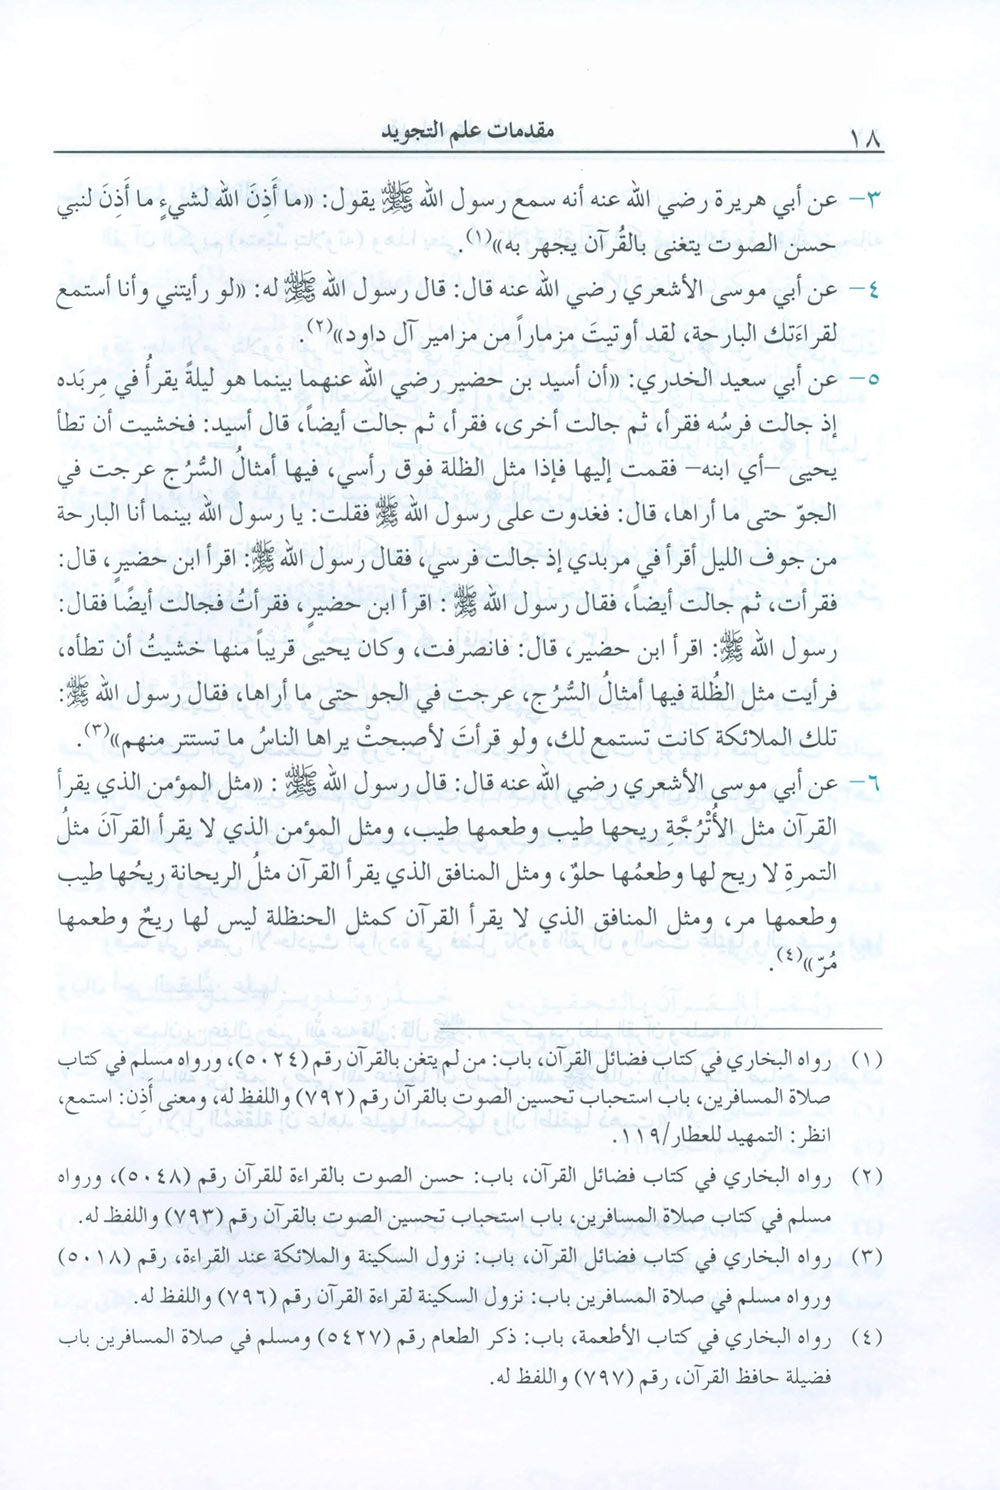 ١٨
مقدمات علم التجويد
٣- عن أبي هريرة رضي الله عنه أنه سمع رسول الله ﷺ يقول: «ما أَذِنَ الله لشيءٍ ما أَذِنَ لنبي
حسن الصوت يتغنى بالقُرآن يجهر به»(١).
٤- عن أبي موسى الأشعري رضي الله عنه قال: قال رسول الله ﷺ له: «لو رأيتني وأنا أستمع
لقراءَتك البارحة، لقد أوتيتَ مزماراً من مزامير آل داود»(٢).
٥- عن أبي سعيد الخدري: «أن أسيد بن حضير رضي الله عنهما بينما هو ليلةً يقرأُ في مِربَده
إذ جالت فرسُه فقرأ، ثم جالت أخرى، فقرأ، ثم جالت أيضاً، قال أسيد: فخشيت أن تطأ
يحيى -أي ابنه- فقمت إليها فإذا مثل الظلة فوق رأسي، فيها أمثالُ السُّرُج عرجت في
الجوّ حتى ما أراها، قال: فغدوت على رسول الله ﷺ فقلت: يا رسول الله بينما أنا البارحة
من جوف الليل أقرأ في مربدي إذ جالت فرسي، فقال رسول الله ﷺ: اقرأ ابن حضيرٍ، قال:
فقرأت، ثم جالت أيضاً، فقال رسول الله ﷺ : اقرأ ابن حضيرٍ، فقرأتُ فجالت أيضًا فقال:
رسول الله ﷺ: اقرأ ابن حضير، قال: فانصرفت، وكان يحيى قريباً منها خشيتُ أن تطأه،
فرأيت مثل الظُلة فيها أمثالُ السُّرُج، عرجت في الجو حتى ما أراها، فقال رسول الله ﷺ:
تلك الملائكة كانت تستمع لك، ولو قرأتَ لأصبحتْ يراها الناسُ ما تستتر منهم»(٣).
٦- عن أبي موسى الأشعري رضي الله عنه قال: قال رسول الله ﷺ : «مثل المؤمن الذي يقرأ
القرآن مثل الأُتْرُجَّةِ ريحها طيب وطعمها طيب، ومثل المؤمن الذي لا يقرأ القرآنَ مثلُ
التمرةِ لا ريح لها وطعمُها حلوٌ، ومثل المنافق الذي يقرأ القرآن مثلُ الريحانة ريحُها طيب
وطعمها مر، ومثل المنافق الذي لا يقرأ القرآن كمثل الحنظلة ليس لها ريحٌ وطعمها
مُرّ»(٤).
(١) رواه البخاري في كتاب فضائل القرآن، باب: من لم يتغن بالقرآن رقم (٥٠٢٤)، ورواه مسلم في كتاب
صلاة المسافرين، باب استحباب تحسين الصوت بالقرآن رقم (٧٩٢) واللفظ له، ومعنى أَذِن: استمع،
انظر: التمهيد للعطار/١١٩.
(٢) رواه البخاري في كتاب فضائل القرآن، باب: حسن الصوت بالقراءة للقرآن رقم (٥٠٤٨)، ورواه
مسلم في كتاب صلاة المسافرين، باب استحباب تحسين الصوت بالقرآن رقم (٧٩٣) واللفظ له.
(٣) رواه البخاري في كتاب فضائل القرآن، باب: نزول السكينة والملائكة عند القراءة، رقم (٥٠١٨)
ورواه مسلم في صلاة المسافرين باب: نزول السكينة لقراءة القرآن رقم (٧٩٦) واللفظ له.
(٤) رواه البخاري في كتاب الأطعمة، باب: ذكر الطعام رقم (٥٤٢٧) ومسلم في صلاة المسافرين باب
فضيلة حافظ القرآن، رقم (٧٩٧) واللفظ له.